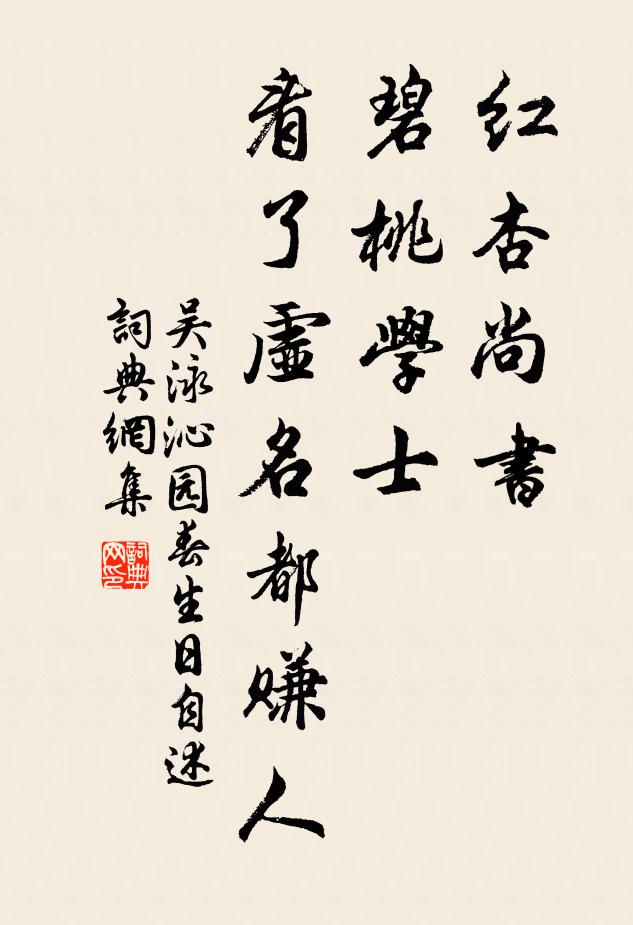 红杏尚書
碧桃學士
看了虛名都赚人
吴泳沁园春生日自述
詞典網集
詞典网印